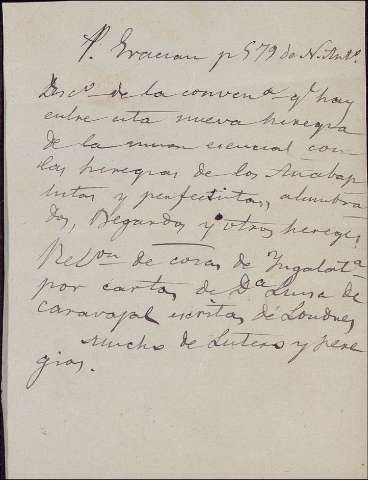 P. Gracian p 579 de N. Antº.
Discº de la convenª qᵉ hay
entre esta nueva heregia
de la union esencial con
las heregias de los Anabap
tistas y perfetistas, alumbra
dos, Begardos y otros hereges.
Relᵒⁿ de cosas de Yngalatª
por cartas de Dª Luisa de
Caravajal escritas de Londres
Mucho de Lutero y here
gias.